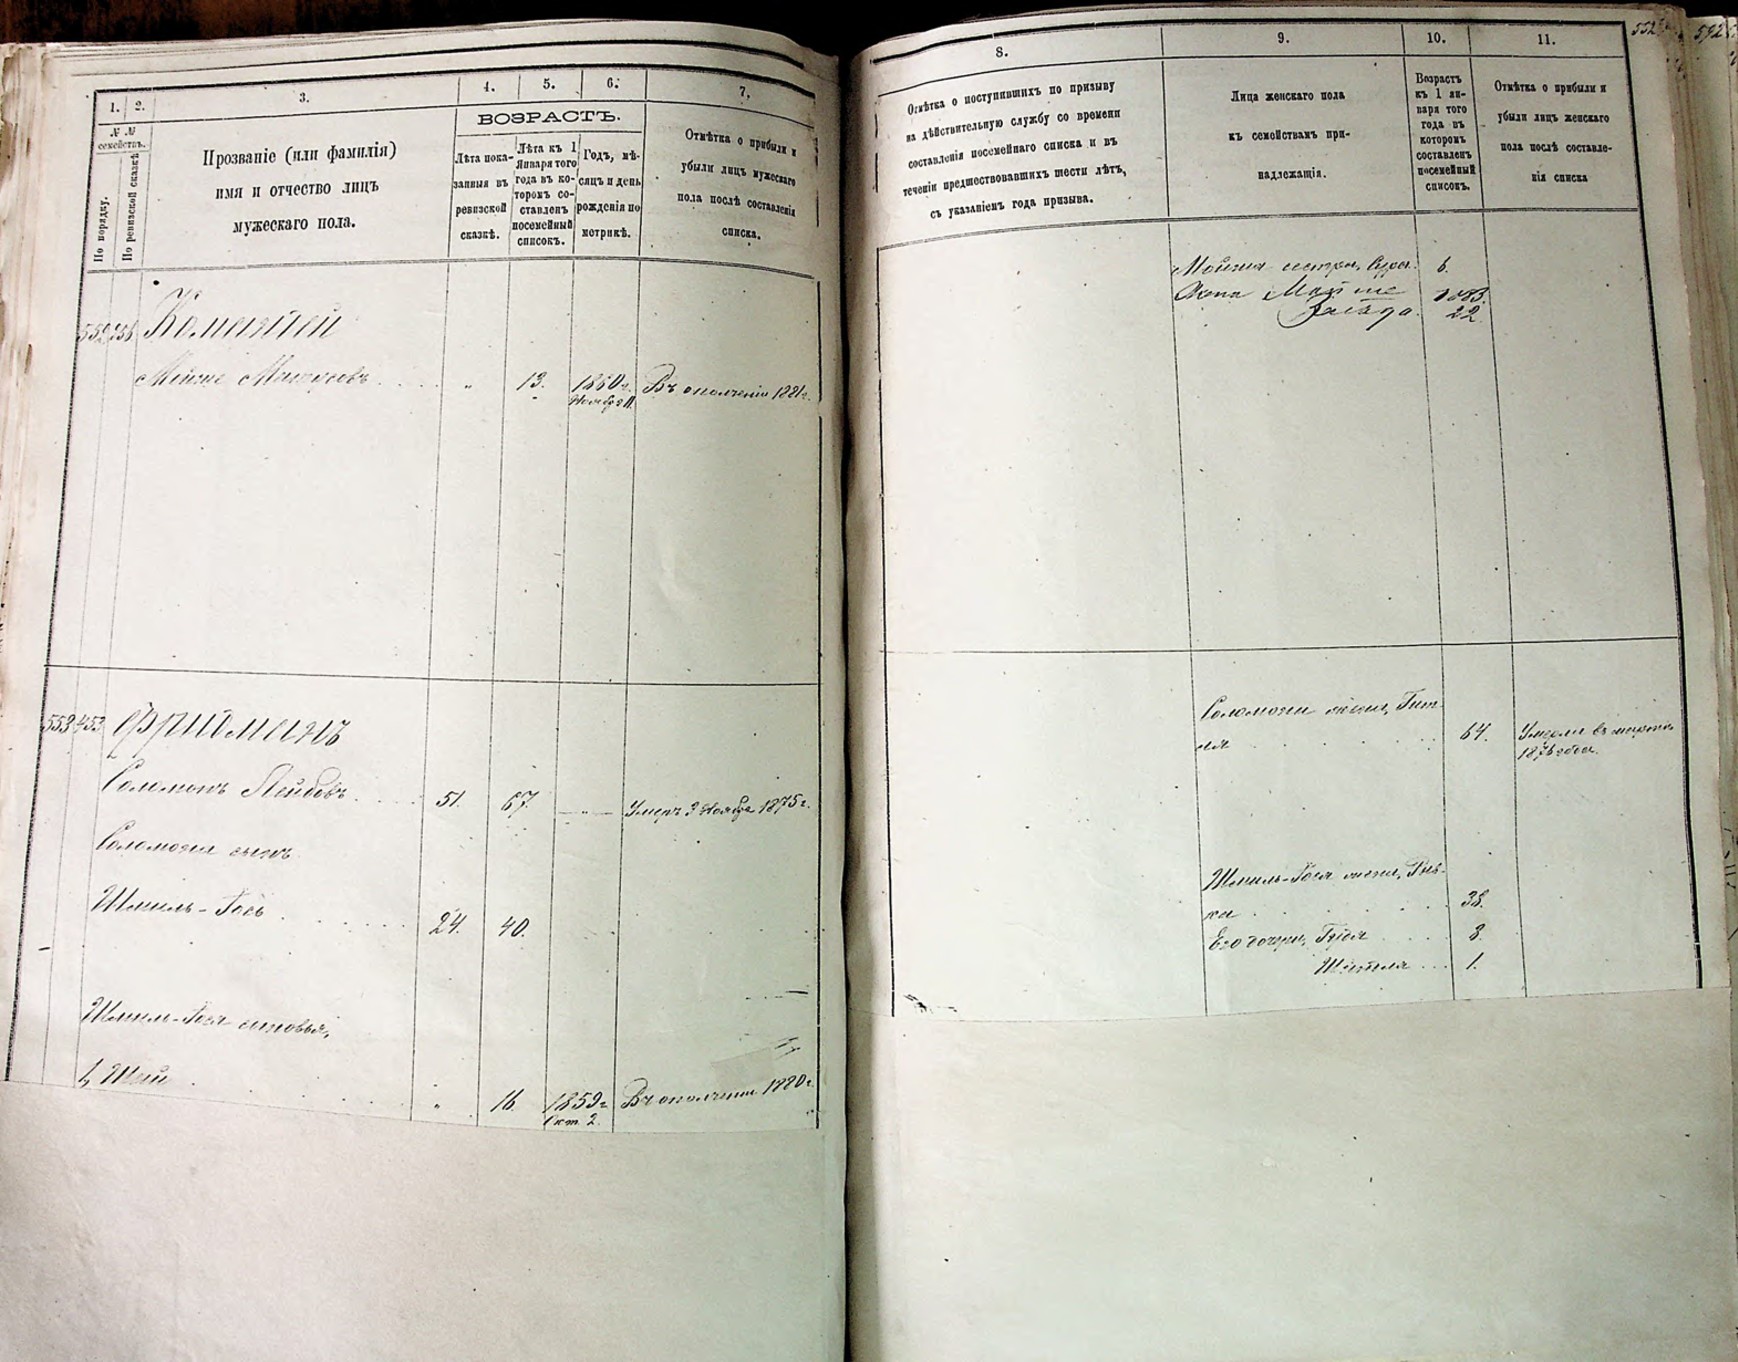 1. 2. 3. 4. 5. 6. 7.
№ №
семействъ.
По порядку.
По ревизской сказкѣ
Прозваніе (или фамилія)
имя и отчество лицъ
мужескаго пола.
ВОЗРАСТЪ.
Лѣта пока-
занныя въ
ревизской
сказкѣ.
Лѣта къ 1
Января того
года въ ко-
торомъ со-
ставленъ
посемейный
списокъ.
Годъ, мѣ-
сяцъ и день
рожденія по
метрикѣ.
Отмѣтка о прибыли и
убыли лицъ мужескаго
пола послѣ составленія
списка.
552
13. 1860 г. Въ ополченіи 1881 г.
Ноября 11
553 453 Фридманъ
Соломонъ Лейбовъ 51. 67. Умеръ 3 Ноября 1875 г.
Соломона сынъ
Шмиль-Іось 24. 40.
Шмиль-Іося сыновья,
1, Шай 16. 1859 г. Въ ополченіи 1880 г.
Окт. 2.
8. 9. 10. 11.
552
592
Отмѣтка о поступившихъ по призыву
на дѣйствительную службу со времени
составленія посемейнаго списка и въ
теченіи предшествовавшихъ шести лѣтъ,
съ указаніемъ года призыва.
Лица женскаго пола
къ семействамъ при-
надлежащія.
Возрастъ
къ 1 ян-
варя того
года въ
которомъ
составленъ
посемейный
списокъ.
Отмѣтка о прибыли и
убыли лицъ женскаго
пола послѣ составле-
нія списка
сестра, Сура. 6.
Жена 1883.
22.
Соломона жена, Гит-
ля 64. Умерла въ
1876 года.
Шмиль-Іося жена, Рив-
ка 38.
Его дочери, 3.
1.